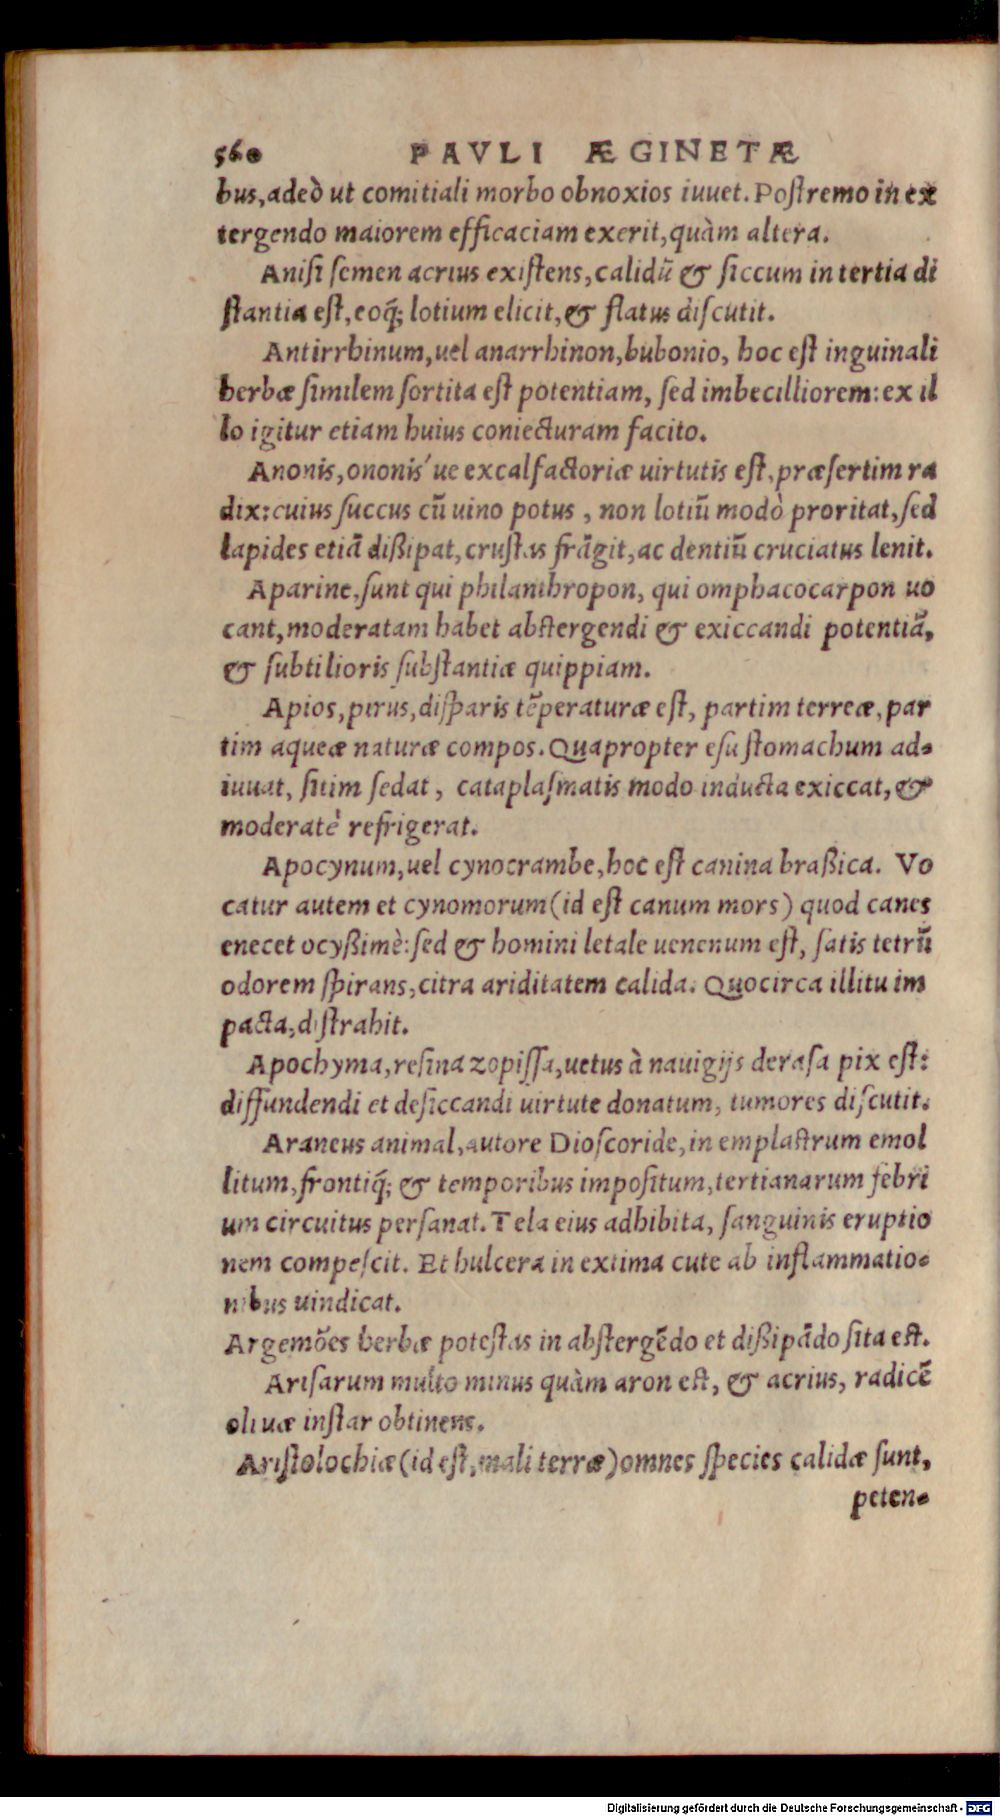 560 PAVLI ÆGINETÆ
bus, adeò ut comitiali morbo obnoxios iuuet. Poſtremo in ex
tergendo maiorem efficaciam exerit, quàm altera.
Aniſi ſemen acrius exiſtens, calidũ & ſiccum in tertia di
ſtantia eſt, eoq́; lotium elicit, & flatus diſcutit.
Antirrhinum, uel anarrhinon, bubonio, hoc eſt inguinali
herbæ ſimilem ſortita eſt potentiam, ſed imbecilliorem: ex il
lo igitur etiam huius coniecturam facito.
Anonis, ononis´ue excalfactoriæ uirtutis eſt, præſertim ra
dix: cuius ſuccus cũ uino potus, non lotiũ modò proritat, ſed
lapides etiã dißipat, cruſtas frãgit, ac dentiũ cruciatus lenit.
Aparine, ſunt qui philanthropon, qui omphacocarpon uo
cant, moderatam habet abſtergendi & exiccandi potentiã,
& ſubtilioris ſubſtantiæ quippiam.
Apios, pirus, diſparis tẽperaturæ eſt, partim terreæ, par
tim aqueæ naturæ compos. Quapropter eſu ſtomachum ad-
iuuat, ſitim ſedat, cataplaſmatis modo inducta exiccat, &
moderatè refrigerat.
Apocynum, uel cynocrambe, hoc eſt canina braßica. Vo
catur autem et cynomorum (id eſt canum mors) quod canes
enecet ocyßimè: ſed & homini letale uenenum eſt, ſatis tetrũ
odorem ſpirans, citra ariditatem calida. Quocirca illitu im
pacta, diſtrahit.
Apochyma, reſina zopiſſa, uetus à nauigijs deraſa pix eſt:
diffundendi et deſiccandi uirtute donatum, tumores diſcutit.
Araneus animal, autore Dioſcoride, in emplaſtrum emol
litum, frontiq́; & temporibus impoſitum, tertianarum febri
um circuitus perſanat. Tela eius adhibita, ſanguinis eruptio
nem compeſcit. Et hulcera in extima cute ab inflammatio-
nibus uindicat.
Argemões herbæ poteſtas in abſtergẽdo et dißipãdo ſita eſt.
Ariſarum multo minus quàm aron eſt, & acrius, radicẽ
oliuæ inſtar obtinens.
Ariſtolochiæ (id eſt, mali terræ) omnes ſpecies calidæ ſunt,
peten-
Digitalisierung gefördert durch die Deutsche Forschungsgemeinschaft - DFG